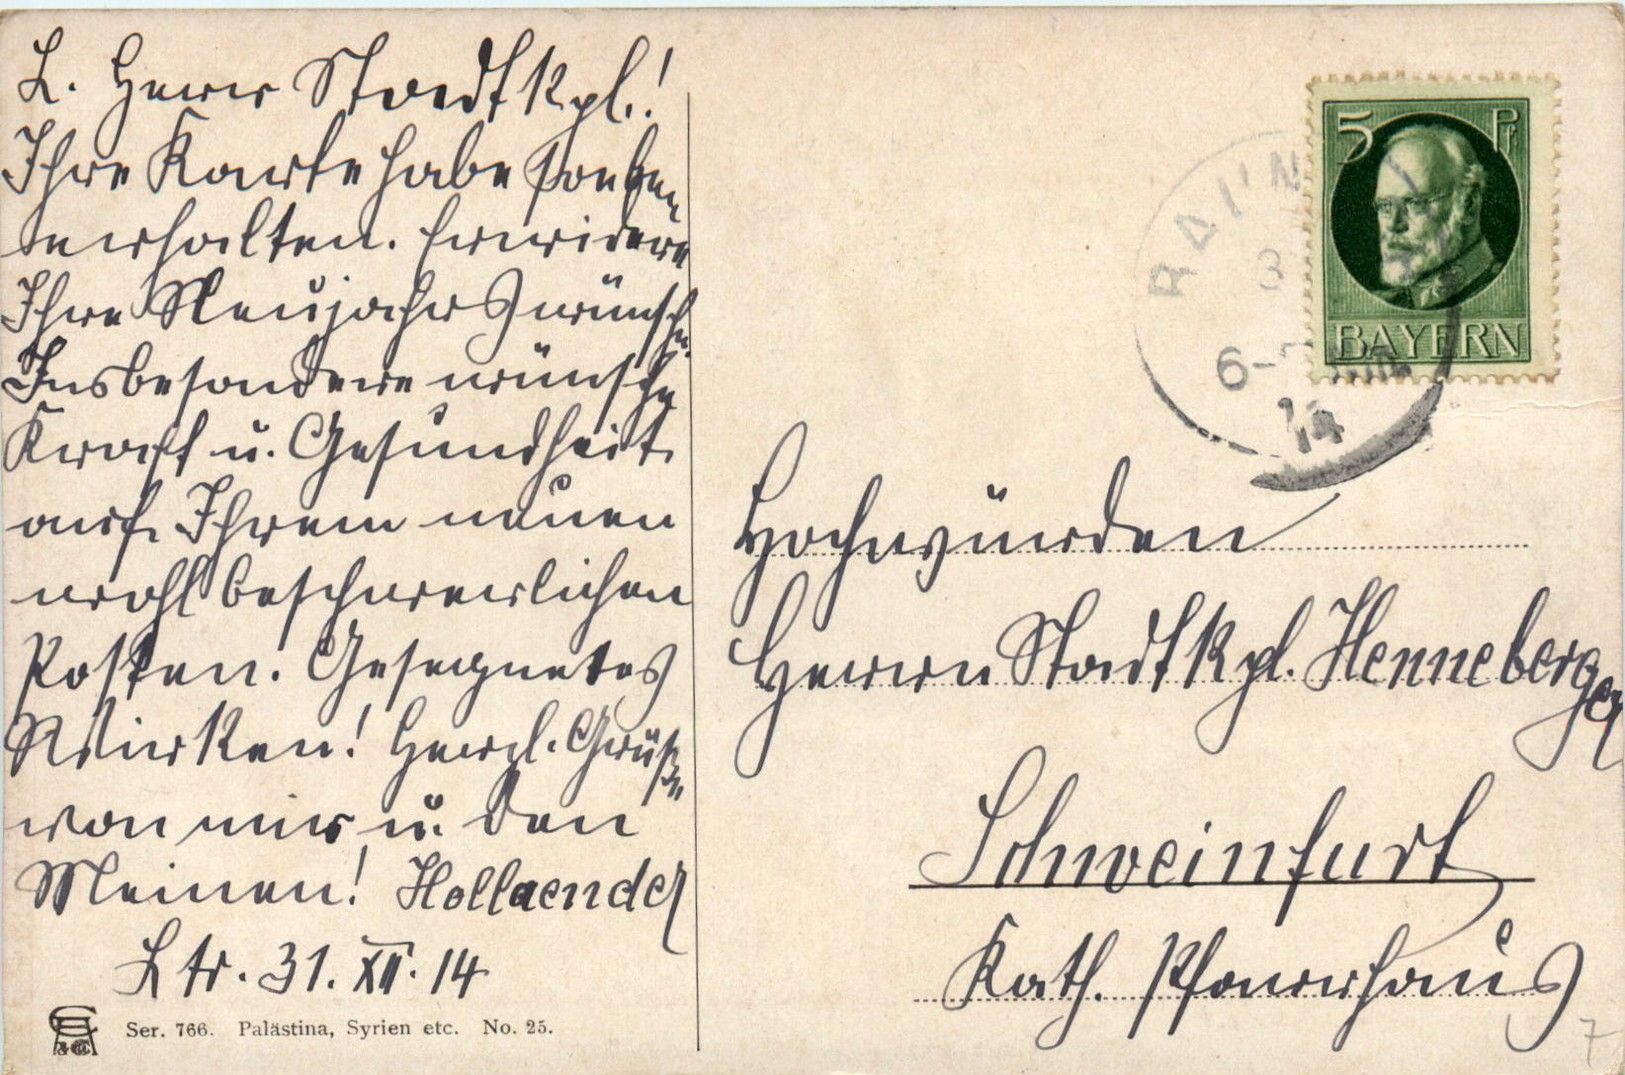 L. Herr Stadtkpl.!
Ihre Karte habe soeben
erhalten. Erwidere
Ihre Neujahrswünsche.
Insbesondere wünsche
Kraft u. Gesundheit
auf Ihrem neuen
wohl beschwerlichen
Posten. Gesegnetes
Wirken! Herzl. Grüße
von mir u. den
Meinen! Hollaender
Ltr. 31. XII. 14
Ser. 766. Palästina, Syrien etc. No. 25.
5 Pf
BAYERN
RAIN
3
6-7
14
Hochwürden
Herrn Stadtkpl. Henneberger
Schweinfurt
Kath. Pfarrhaus
7